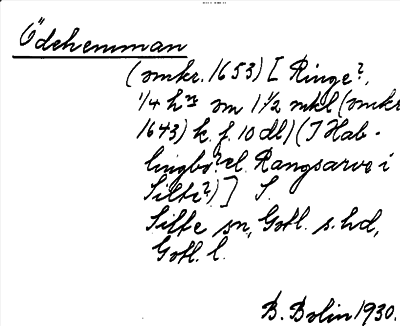 Ödehemman
(omkr. 1653) [ Ringe?,
1/4 hm om 1 1/2 mkl (omkr
1643) k. f. 10 dl) (I Hab-
lingbo? el. Rangsarve i
Silte?) ] S.
Silte sn, Gotl. s. hd,
Gotl. l.
B. Bolin 1930.